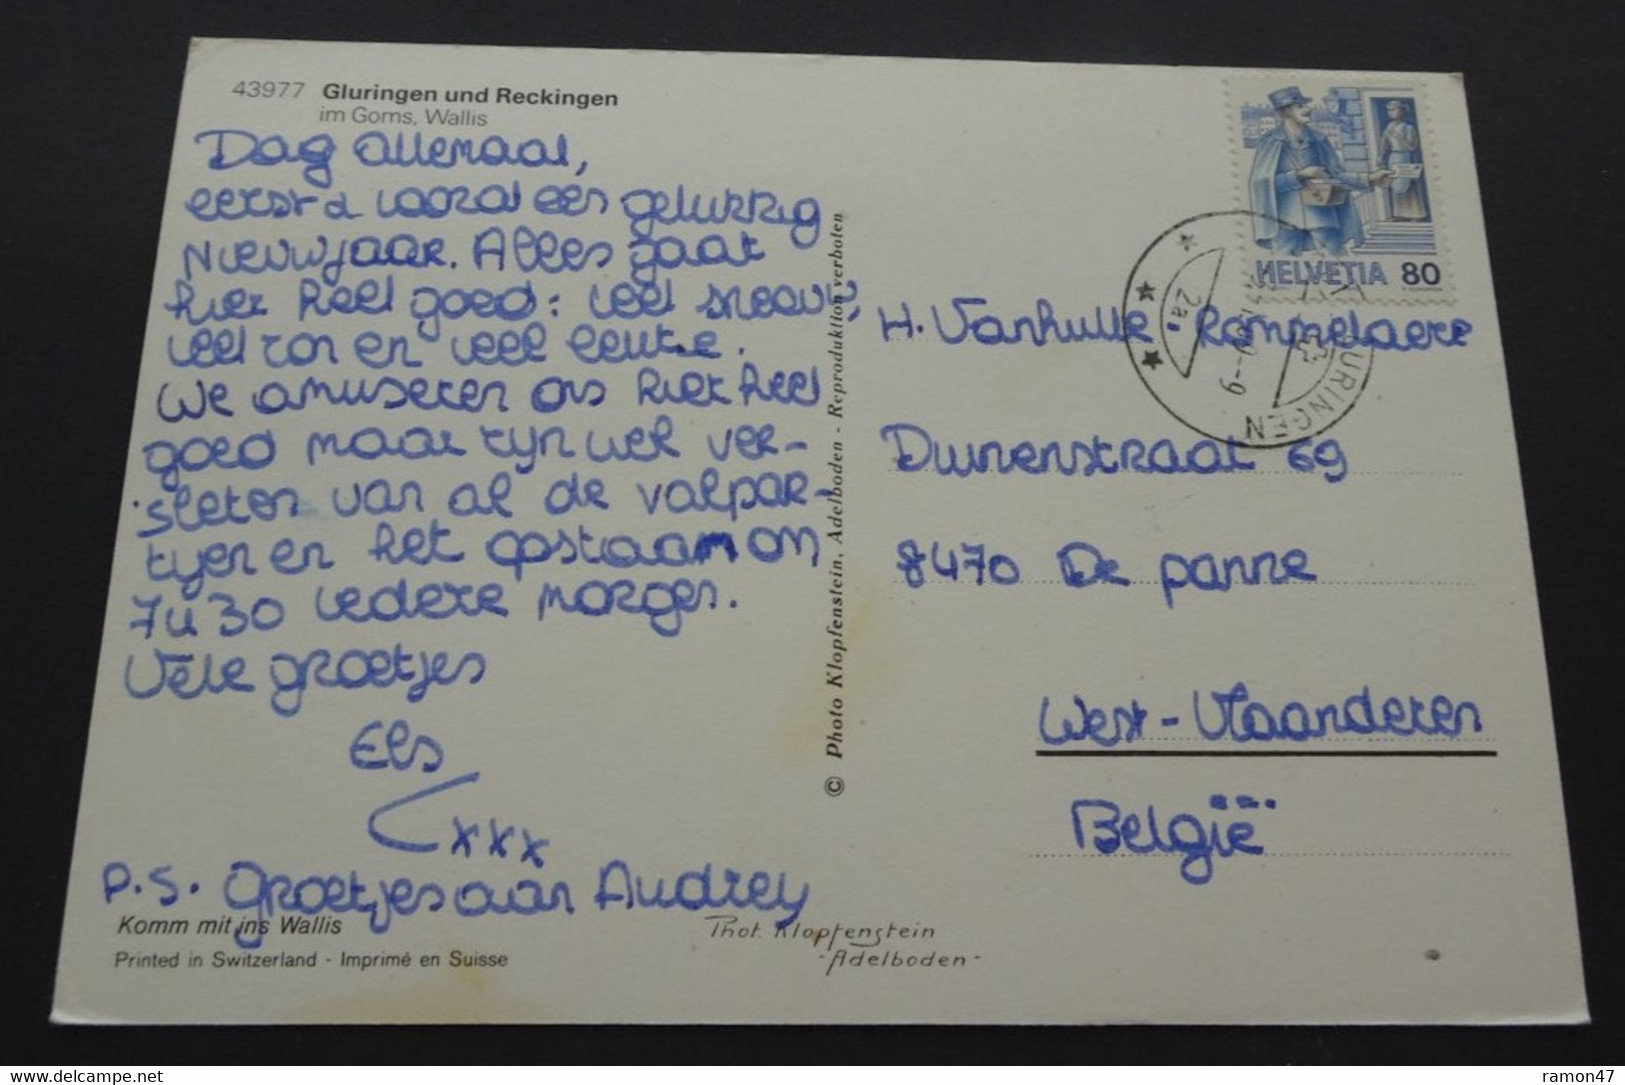 43977 Gluringen und Reckingen
im Goms, Wallis
Dag allemaal,
eerst & vooral een gelukkig
Nieuwjaar. Alles gaat
hier heel goed: veel sneeuw,
veel zon en veel leute.
We amuseren ons hier heel
goed maar zijn wel ver-
sleten van al de valpar-
tijen en het opstaan om
7u30 iedere morgen.
Vele groetjes
Els
xxx
P.S. Groetjes aan Audrey
Komm mit ins Wallis
Printed in Switzerland - Imprimé en Suisse
© Photo Klopfenstein, Adelboden - Reproduktion verboten
Phot. Klopfenstein
-Adelboden-
HELVETIA 80
H. Vanhulle Rommelaere
Duinenstraat 69
8470 De Panne
West-Vlaanderen
België
ramon47